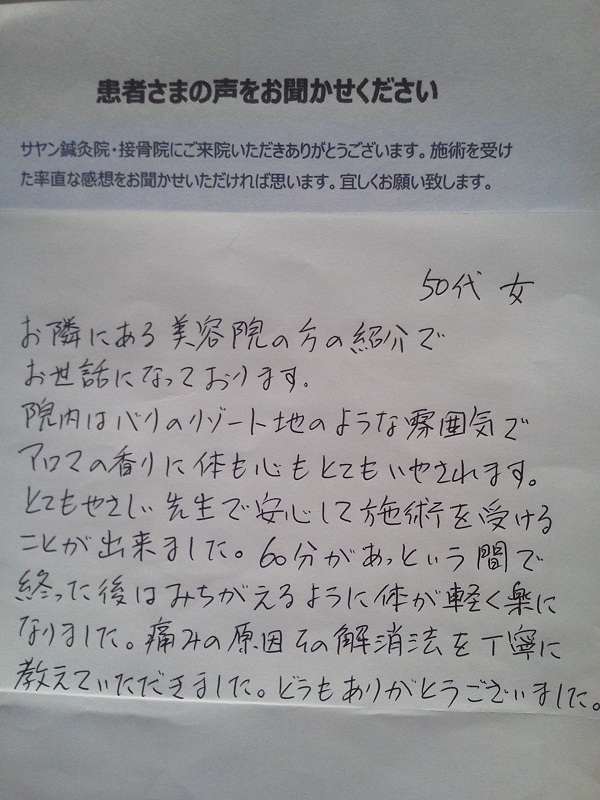 患者さまの声をお聞かせください
サヤン鍼灸院・接骨院にご来院いただきありがとうございます。施術を受け
た率直な感想をお聞かせいただければ思います。宜しくお願い致します。
50代 女
お隣にある美容院の方の紹介で
お世話になっております.
院内はバリのリゾート地のような雰囲気で
アロマの香りに体も心もとてもいやされます。
とてもやさしい先生で安心して施術を受ける
ことが出来ました。60分があっという間で
終った後はみちがえるように体が軽く楽に
なりました。痛みの原因その解消法を丁寧に
教えていただきました。どうもありがとうございました。